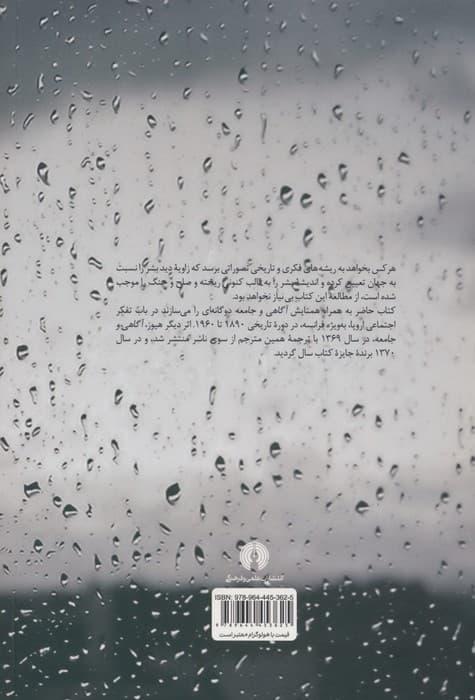 هر کس بخواهد به ریشه‌های فکری و تاریخی تصوراتی برسد که زاویهٔ دید بشر را نسبت
به جهان تعیین کرده و اندیشهٔ بشر را به قالب کنونی ریخته و صلح و جنگ را موجب
شده است، از مطالعهٔ این کتاب بی نیاز نخواهد بود.
کتاب حاضر به همراه همتایش آگاهی و جامعه دوگانه‌ای را می‌سازند در باب تفکر
اجتماعی اروپا، به‌ویژه فرانسه، در دورهٔ تاریخی ۱۸۹۰ تا ۱۹۶۰. اثر دیگر هیوز، آگاهی و
جامعه، در سال ۱۳۶۹ با ترجمهٔ همین مترجم از سوی ناشر منتشر شد، و در سال
۱۳۷۰ برندهٔ جایزهٔ کتاب سال گردید.
انتشارات علمی و فرهنگی
ISBN: 978-964-445-362-5
9 789644 453625
قیمت با هولوگرام معتبر است